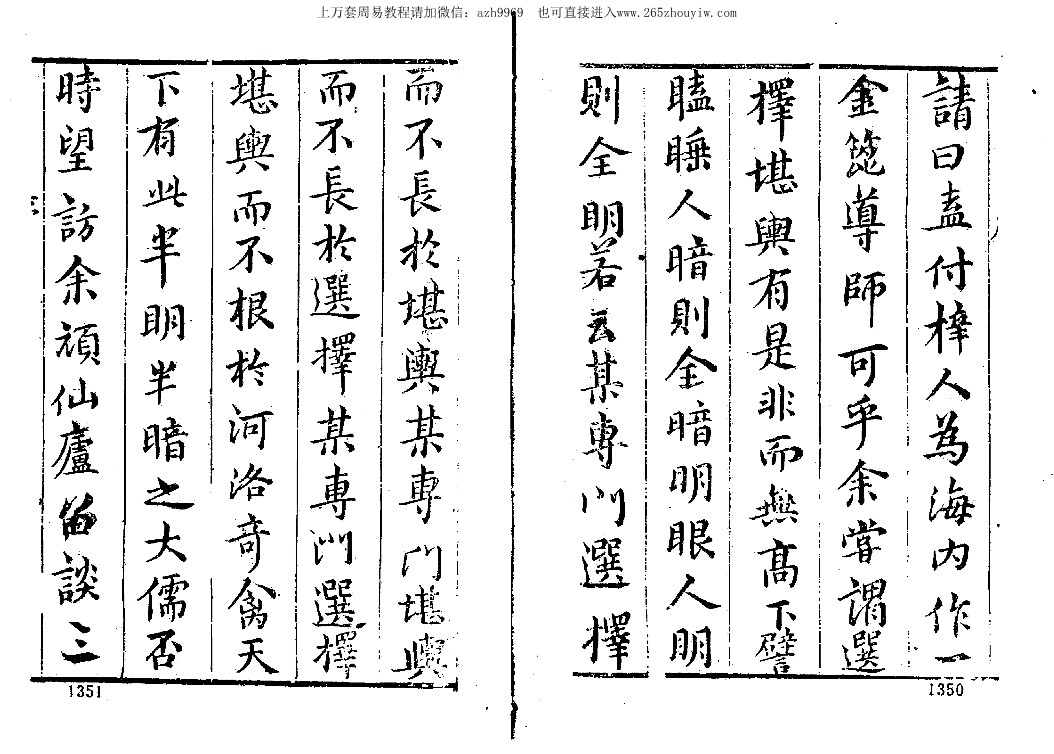 上万套周易教程请加微信：azh9969　也可直接进入www.265zhouyiw.com
請曰盍付梓人為海内作一
金箆導師可乎余嘗謂選
擇堪輿有是非而無高下譬
瞌睡人暗則全暗明眼人明
則全明若云某專門選擇
而不長於堪輿某專門堪輿
而不長於選擇某專門選擇
堪輿而不根於河洛奇禽天
下有此半明半暗之大儒否
時望訪余頑仙廬留談三
1350
1351